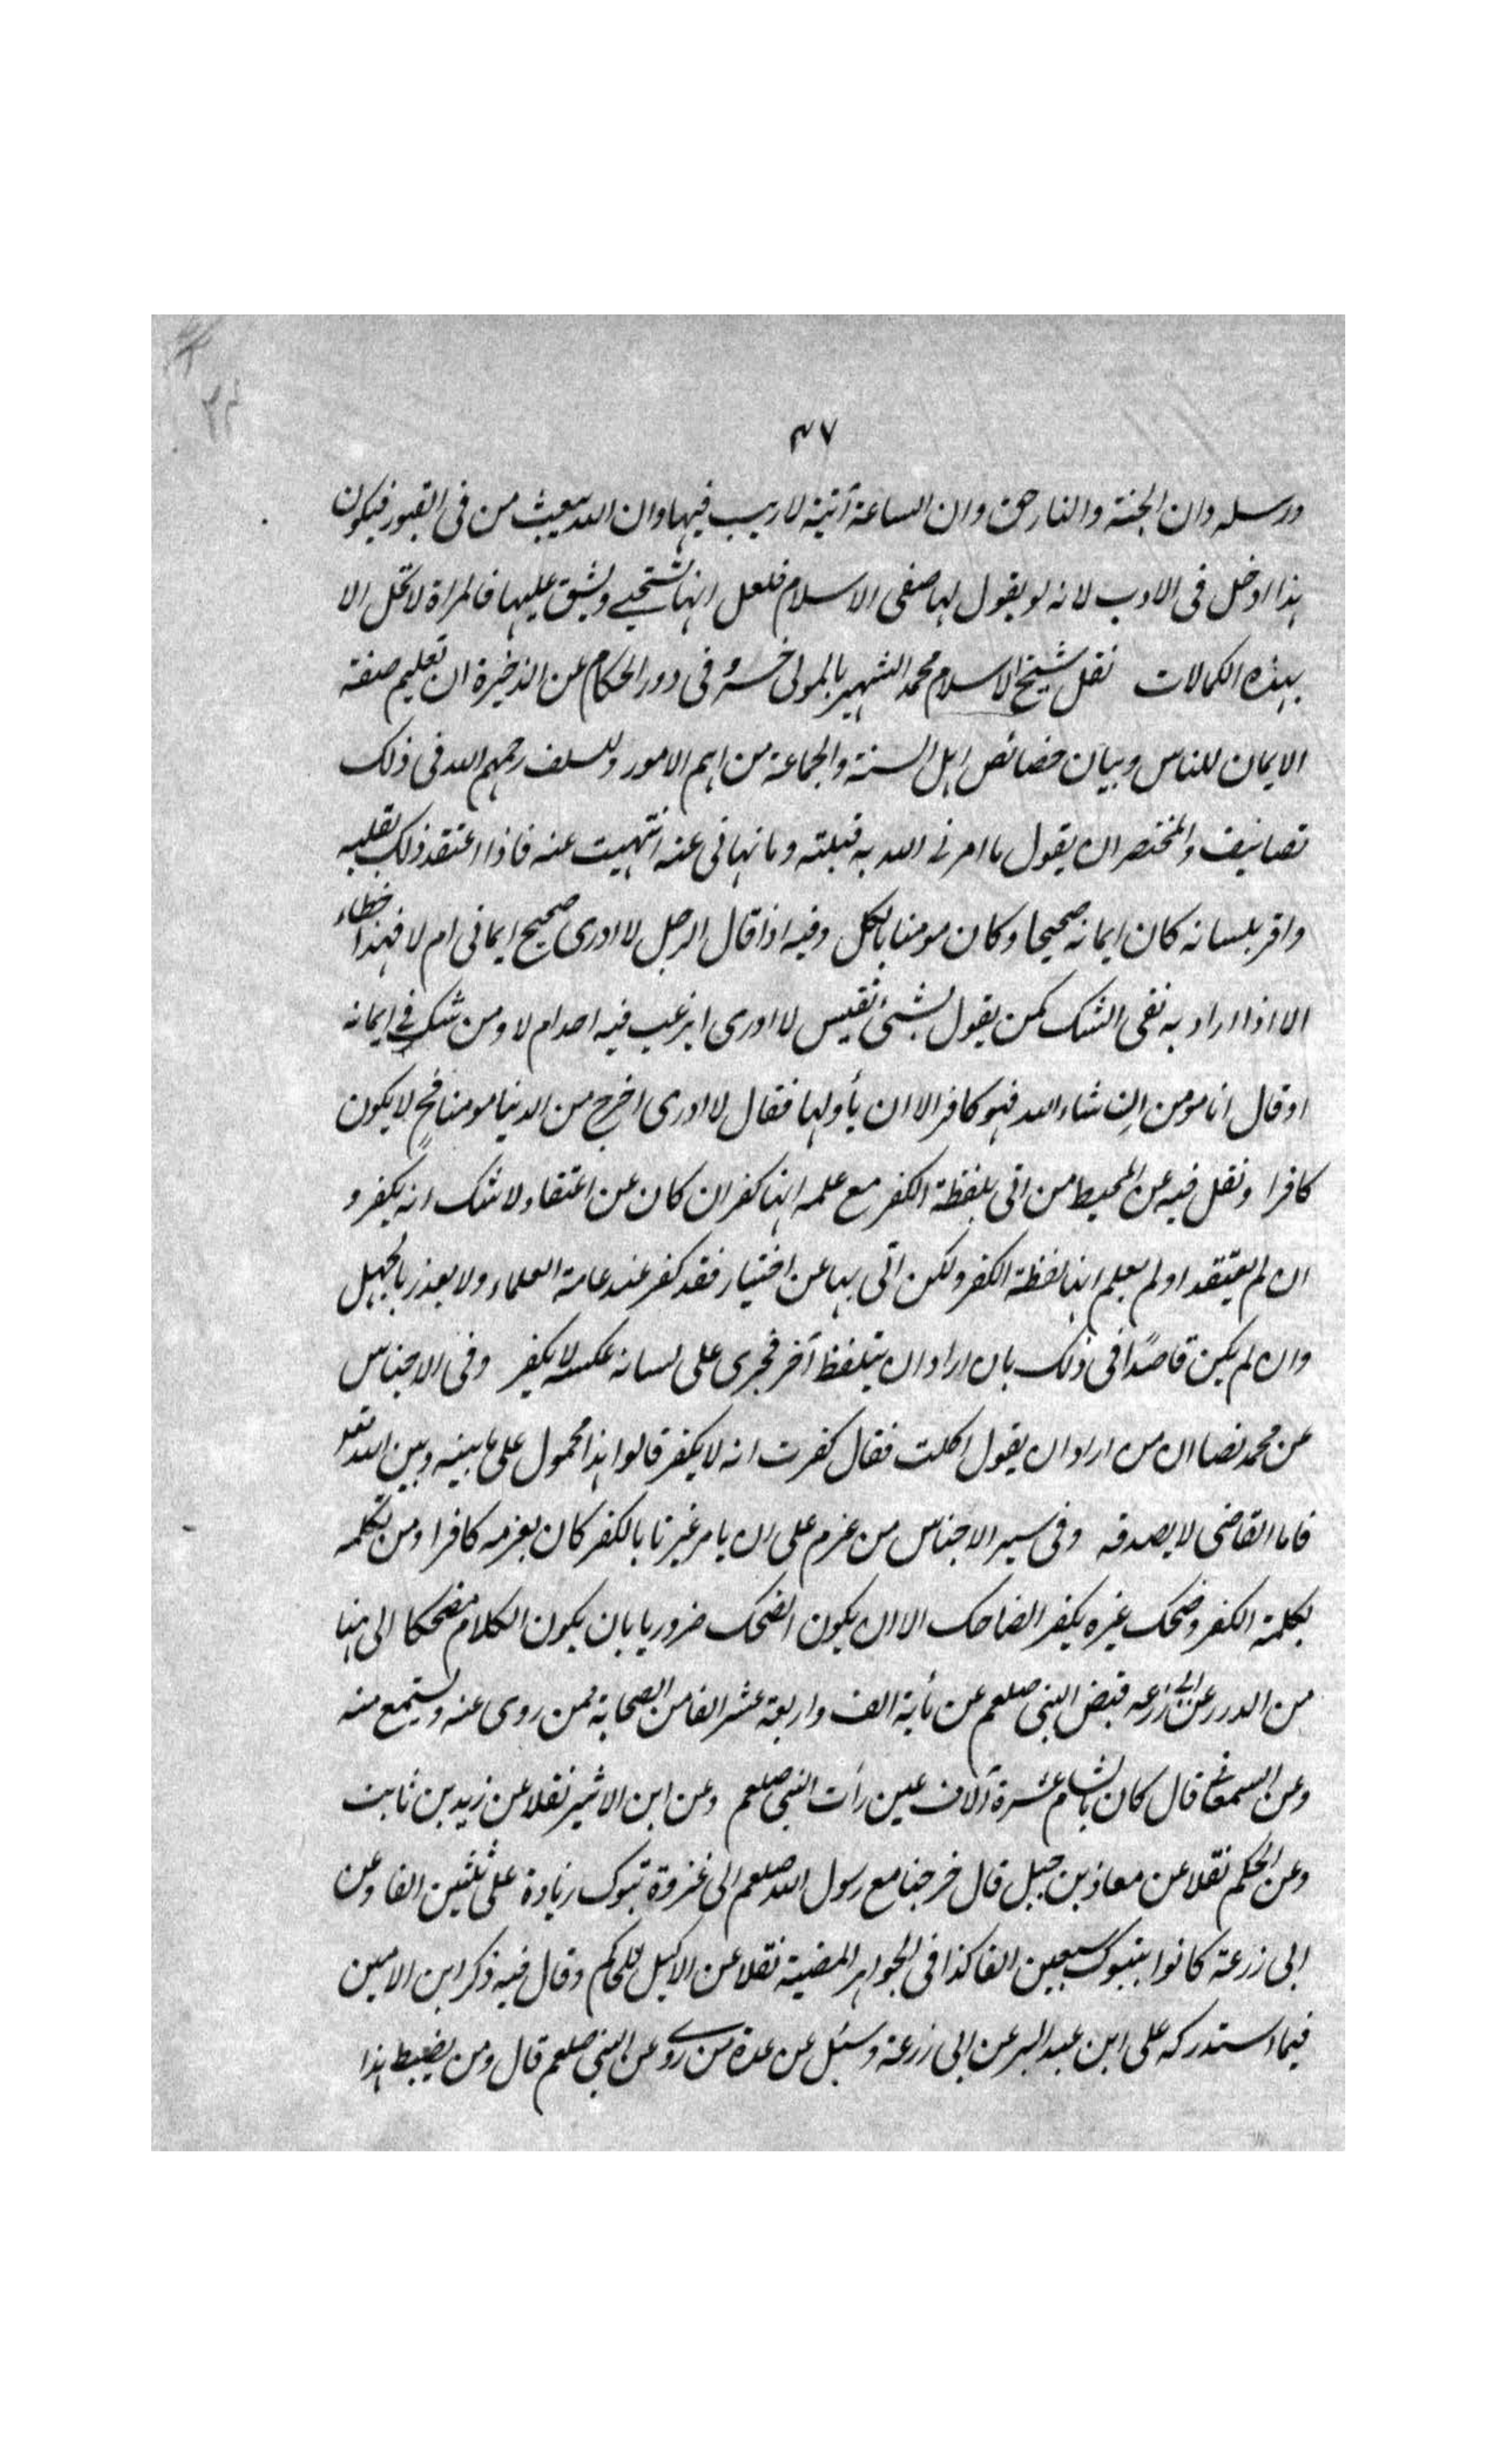 ٤٧
ورسله وان الجنة والنار حق وان الساعة آتية لا ريب فيها وان الله يبعث من فى القبور فيكون
هذا ادخل فى الادب لانه لو يقول لها صفى الاسلام فلعل انها تستحيي ويشق عليها فالمراة لا تحل الا
بهذه الكمالات نقل شيخ الاسلام محمد الشهير بالمولى خسرو فى درر الحكام عن الذخيرة ان تعليم صفة
الايمان للناس وبيان خصائص اهل السنة والجماعة من اهم الامور وللسلف رحمهم الله فى ذلك
تصانيف والمختصر ان يقول ما امرنى الله به قبلته وما نهانى عنه انتهيت عنه فاذا اعتقد ذلك بقلبه
واقر بلسانه كان ايمانه صحيحا وكان مومنا بالكل وفيه اذا قال الرجل لا ادرى صحيح ايمانى ام لا فهذا خطاء
الا اذا اراد به نفى الشك كمن يقول لشىء نفيس لا ادرى ايرغب فيه احد ام لا ومن شك فى ايمانه
او قال انا مومن ان شاء الله فهو كافر الا ان يأولها فقال لا ادرى اخرج من الدنيا مومنا فح لا يكون
كافرا ونقل فيه عن المحيط من اتى بلفظة الكفر مع علمه انها كفر ان كان عن اعتقاد لا شك انه يكفر و
ان لم يعتقد او لم يعلم انها لفظة الكفر ولكن اتى بها عن اختيار فقد كفر عند عامة العلماء ولا يعذر بالجهل
وان لم يكن قاصدًا فى ذلك بان اراد ان يتلفظ آخر فجرى على لسانه عكسه لا يكفر وفى الاجناس
عن محمد نصا ان من اراد ان يقول اكلت فقال كفرت انه لا يكفر قالوا هذا محمول على ما بينه وبين الله تعه
فاما القاضى لا يصدقه وفى سير الاجناس من عزم على ان يامر غيرنا بالكفر كان بعزمه كافرا ومن تكلمه
بكلمة الكفر وضحك غيره يكفر الضاحك الا ان يكون الضحك ضروريا بان يكون الكلام مضحكا الى هنا
من الدرر عن ابى زرعه قبض النبى صلعم عن مأية الف واربعة عشر الفا من الصحابة ممن روى عنه ويستمع منه
وعن السمعانى قال كان بالشام عشرة آلاف عين رأت النبى صلعم وعن ابن الاثير نقلا عن زيد بن ثابت
وعن الحكم نقلا عن معاذ بن جبل قال خرجنا مع رسول الله صلعم الى غزوة تبوك زيادة على ثلثين الفا وعن
ابى زرعة كانوا بتبوك سبعين الفا كذا فى الجواهر المضية نقلا عن الاكليل للحاكم وقال فيه ذكر ابن الامين
فيما استدركه على ابن عبد البر عن ابى زرعة وسئل عن عدة من روى عن النبى صلعم قال ومن يضبط هذا